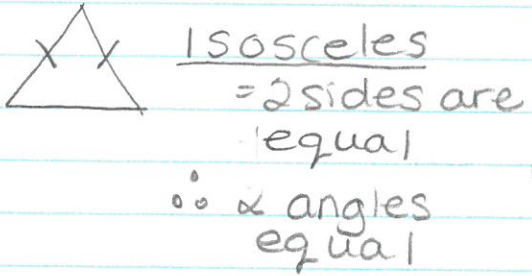 Isosceles
=2 sides are
equal
∴ 2 angles
equal